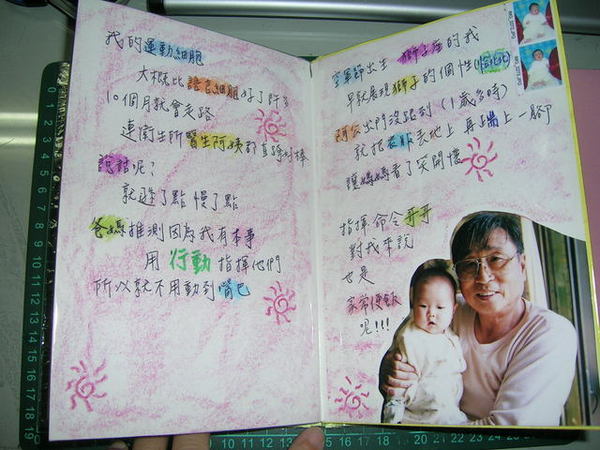 我的運動細胞
大概比語言細胞好了許多
10個月就會走路
連衛生所醫生阿姨都直誇好棒
說話呢？
就遜了點 慢了點
爸媽推測因為我有本事
用 行動 指揮他們
所以就不用動到嘴巴
空軍節出生 獅子座的我
早就展現獅子的個性
阿公出門沒跟到（1歲多時）
就把衣服丟地上 再踹上一腳
讓媽媽看了笑開懷
指揮命令哥哥
對我來說
也是
家常便飯
呢!!!
0 1 2 3 4 5 6 7 8 9 10 11 12 13 14 15 16 17 18 19